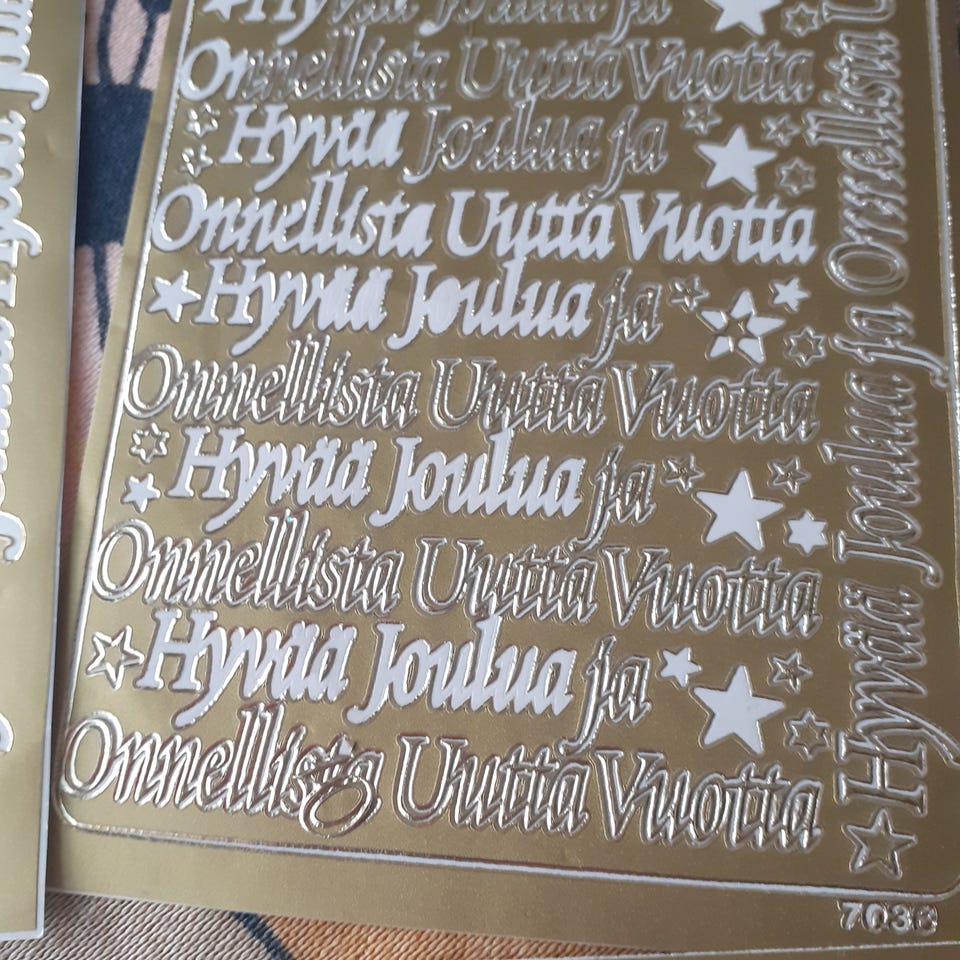 Hyvää Joulua ja
Onnellista Uutta Vuotta
Hyvää Joulua ja
Onnellista Uutta Vuotta
Hyvää Joulua ja
Onnellista Uutta Vuotta
Hyvää Joulua ja
Onnellista Uutta Vuotta
Hyvää Joulua ja
Onnellista Uutta Vuotta
Hyvää Joulua ja Onnellista
7036